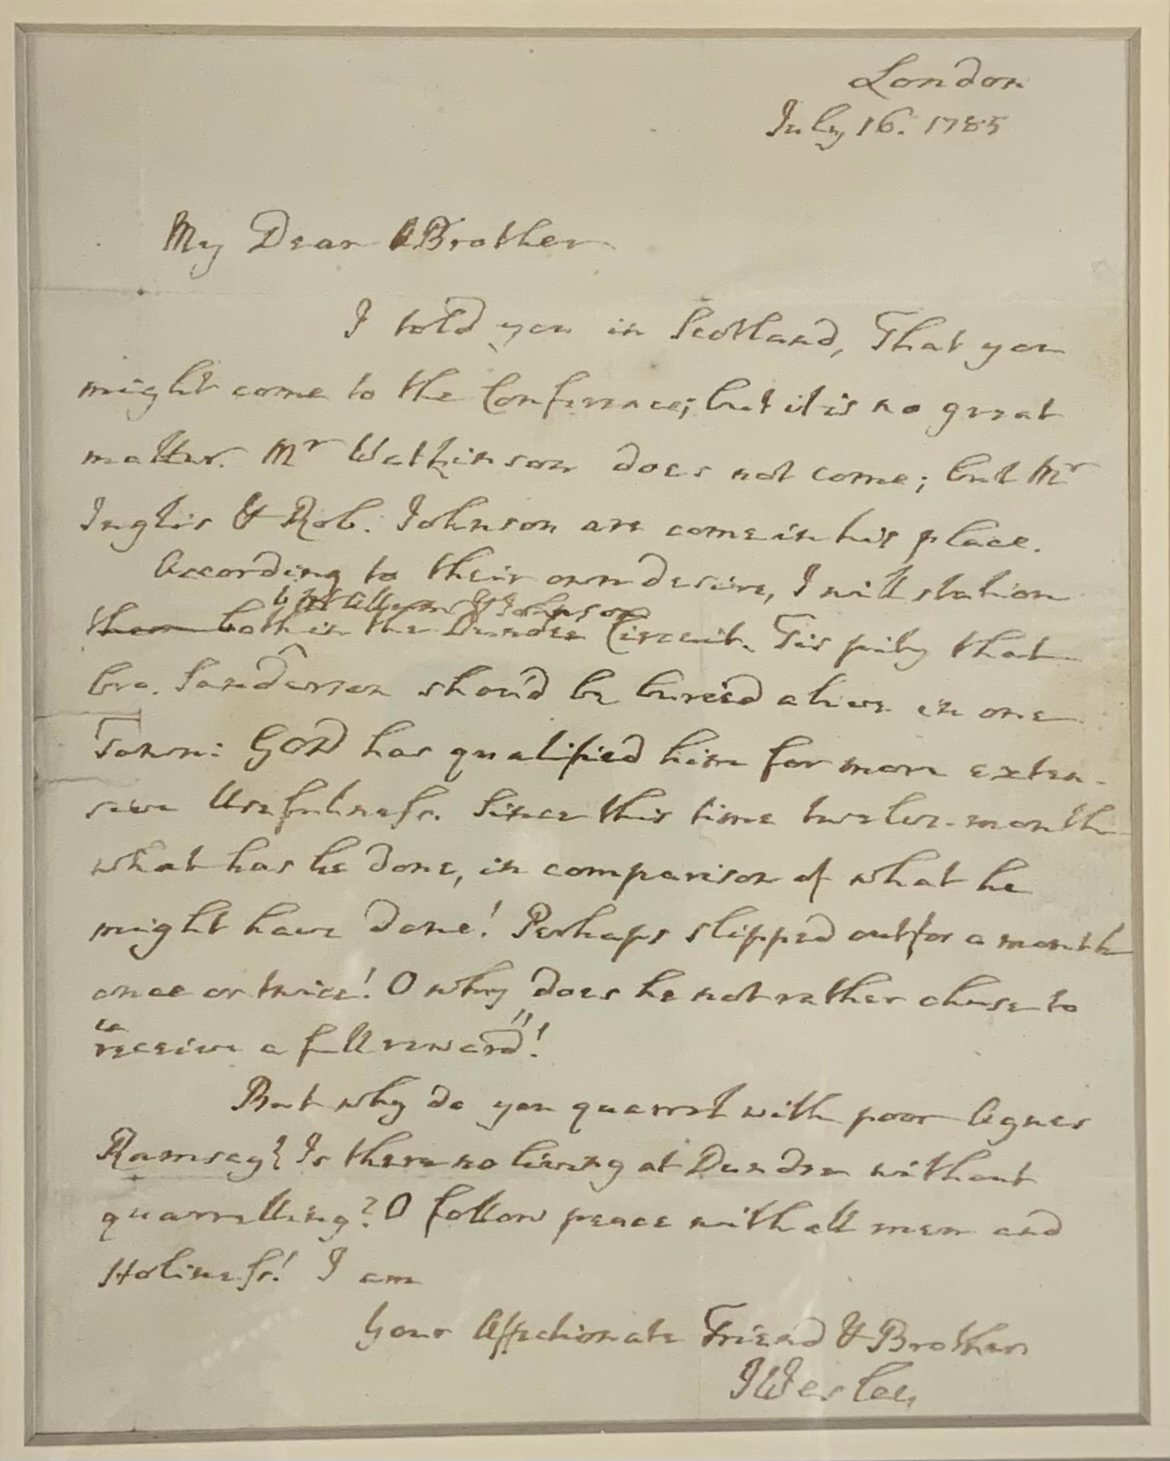 London
July 16. 1785
My Dear Brother
I told you in Scotland, That you
might come to the Conference; but it is no great
matter. Mr Watkinson does not come; but Mr
Inglis & Rob. Johnson are come in his place.
According to their own desire, I will station
Johnson
them both in the Dundee Circuit. Tis pity that
bro. Sanderson shou'd be buried alive in one
Town: GOD has qualified him for more exten-
sive Usefulness. Since this time twelve-month
what has he done, in comparison of what he
might have done! Perhaps slipped out for a month
once or twice! O why does he not rather chuse to
receive a full reward"!
But why do you quarrel with poor Agnes
Ramsey? Is there no living at Dundee without
quarrelling? O follow peace with all men and
Holiness! I am
Your Affectionate Friend & Brother
J Wesley